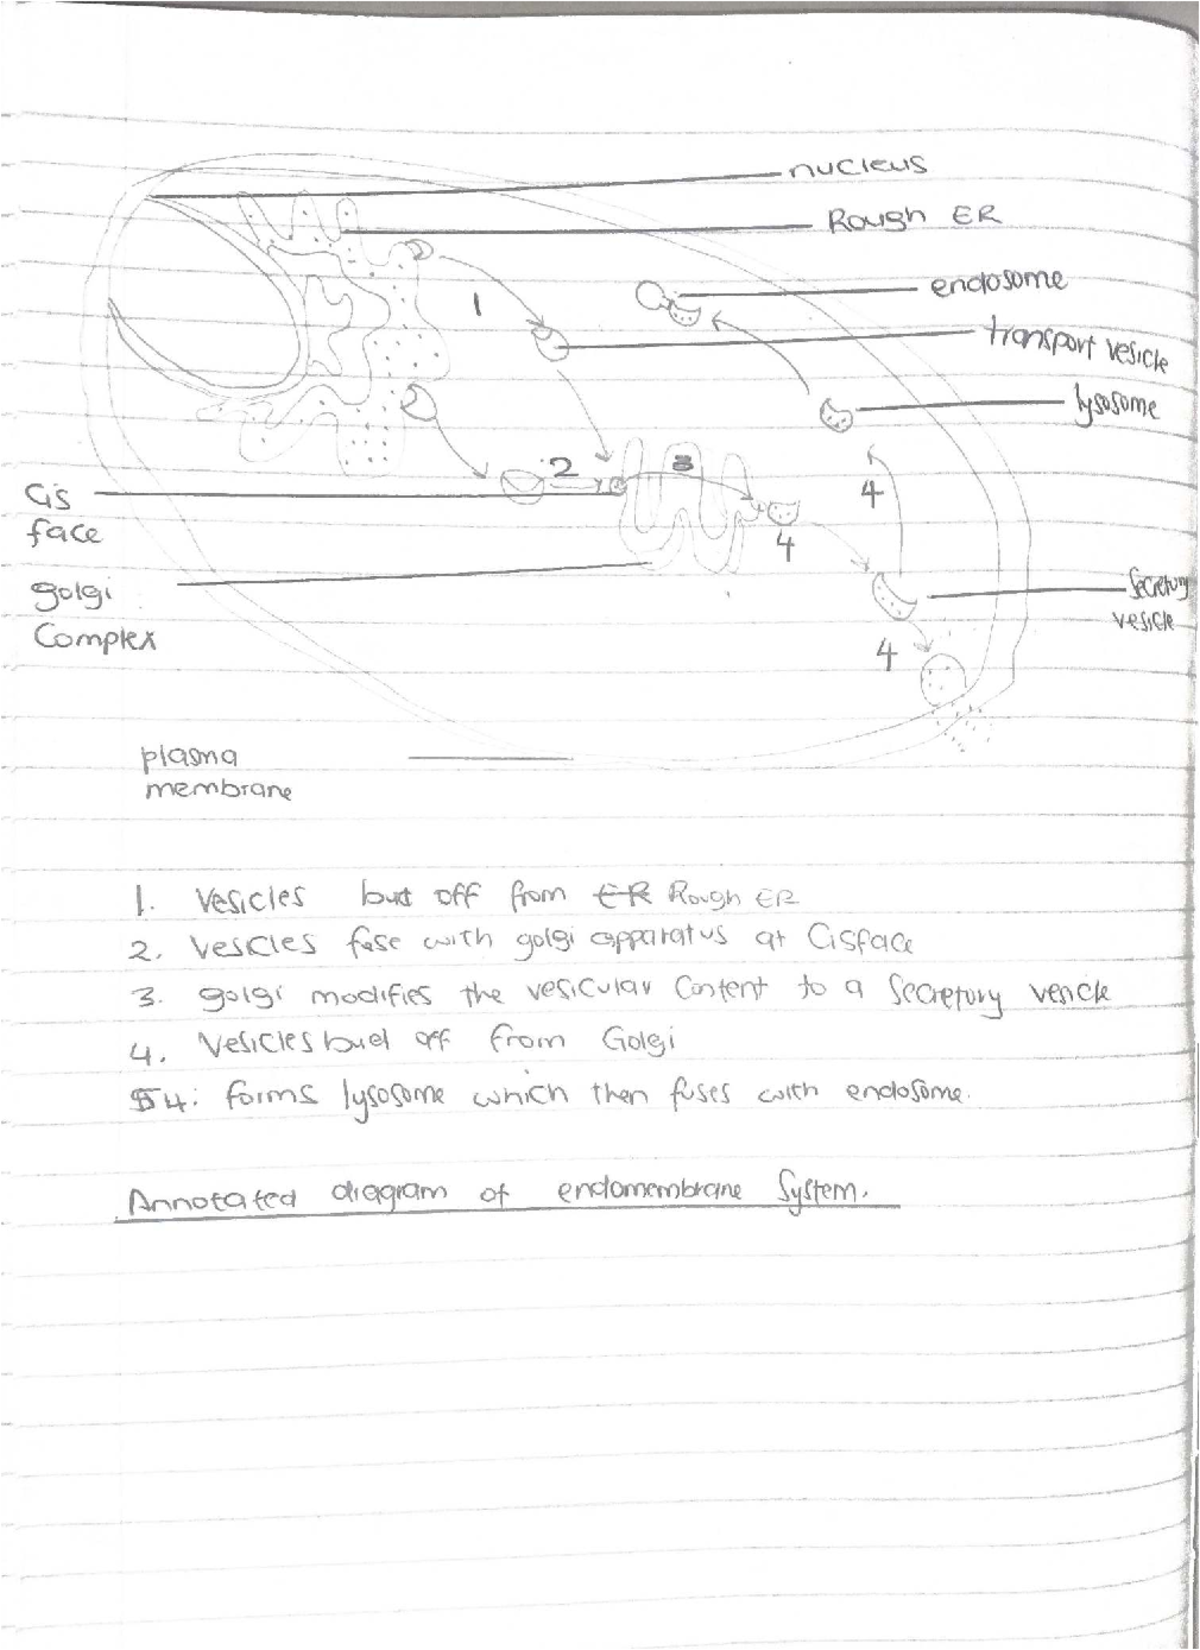 nucleus
Rough ER
endosome
1
transport vesicle
lysosome
2
3
Cis
face
4
4
golgi
Complex
Secretory
vesicle
4
plasma
membrane
1. Vesicles bud off from ER Rough ER
2. Vesicles fuse with golgi apparatus at Cisface
3. golgi modifies the vesicular Content to a Secretory vesicle
4. Vesicles bud off from Golgi
54: forms lysosome which then fuses with endosome.
Annotated diagram of endomembrane System.